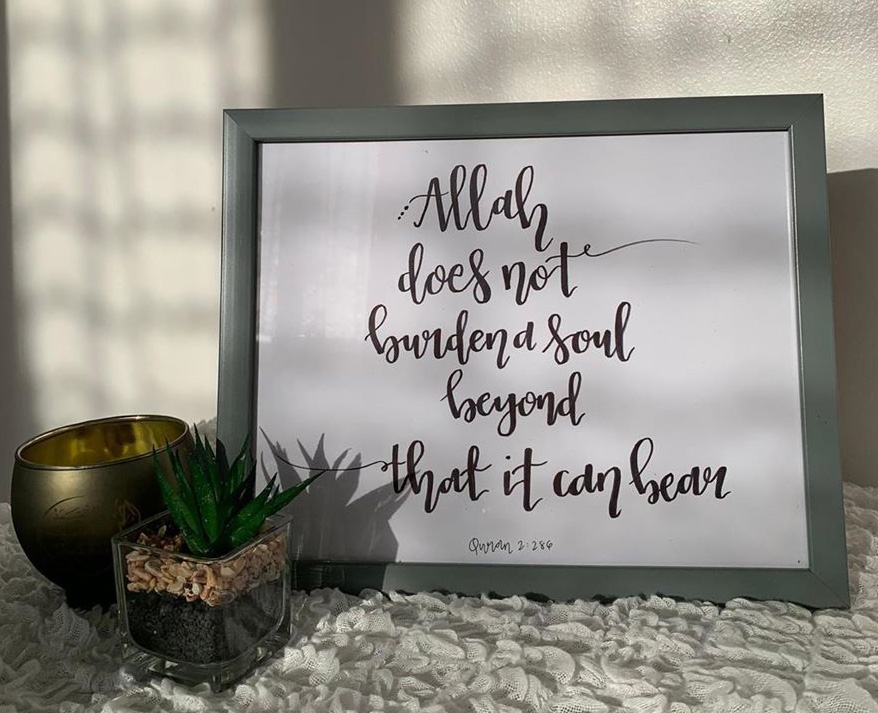 Allah
does not
burden a soul
beyond
that it can bear
Quran 2:286